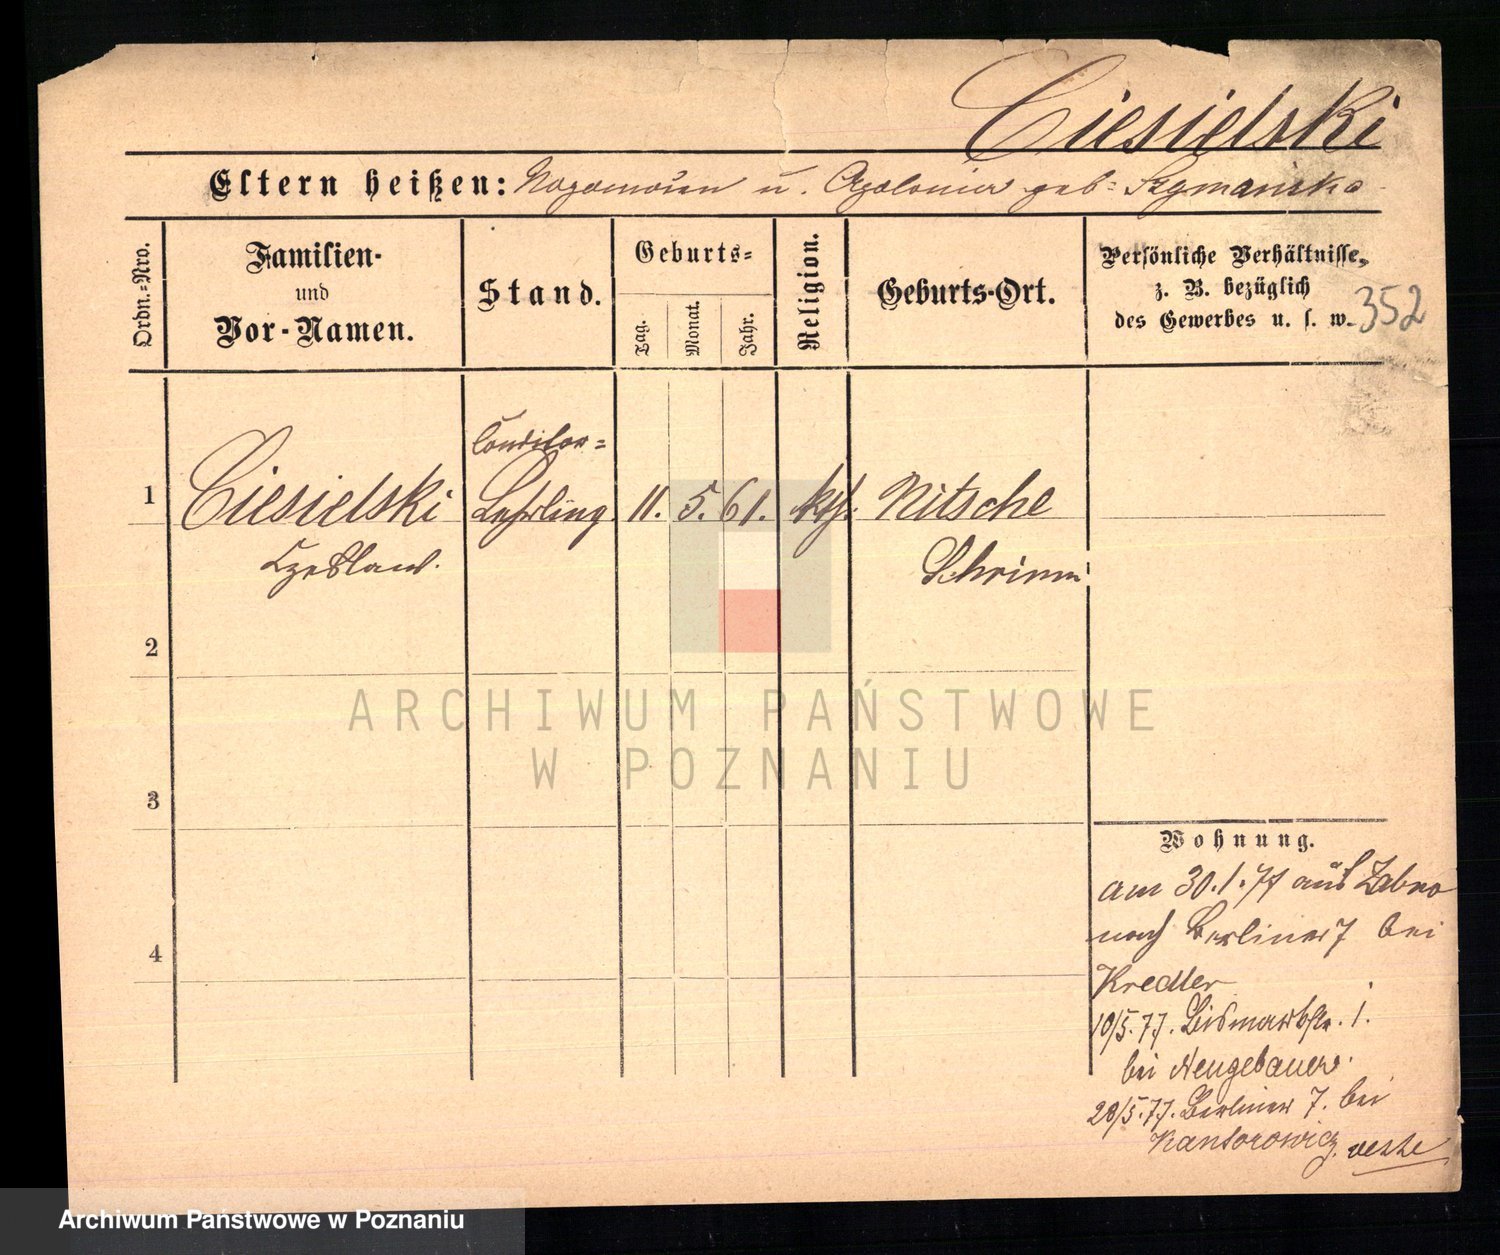 Ciesielski
Eltern heißen: u. Apolonia geb: Szymańska
Ordn.-Nro.
Familien-
und
Vor-Namen.
Stand.
Geburts-
Tag.
Monat.
Jahr.
Religion.
Geburts-Ort.
Persönliche Verhältnisse,
z. B. bezüglich
des Gewerbes u. s. w.
352
1
Ciesielski
Czesław.
Conditor-
Lehrling
11. 5. 61.
kth.
Nitsche
Schrimm
2
3
4
Wohnung.
am 30.1.77 aus Zabno
nach Berliner 7 bei
Kredler
10/5.77. Bismarkstr. 1.
bei Neugebauer.
28/5.77. Berliner 7. bei
Kantorowicz.
ARCHIWUM PAŃSTWOWE
W POZNANIU
Archiwum Państwowe w Poznaniu